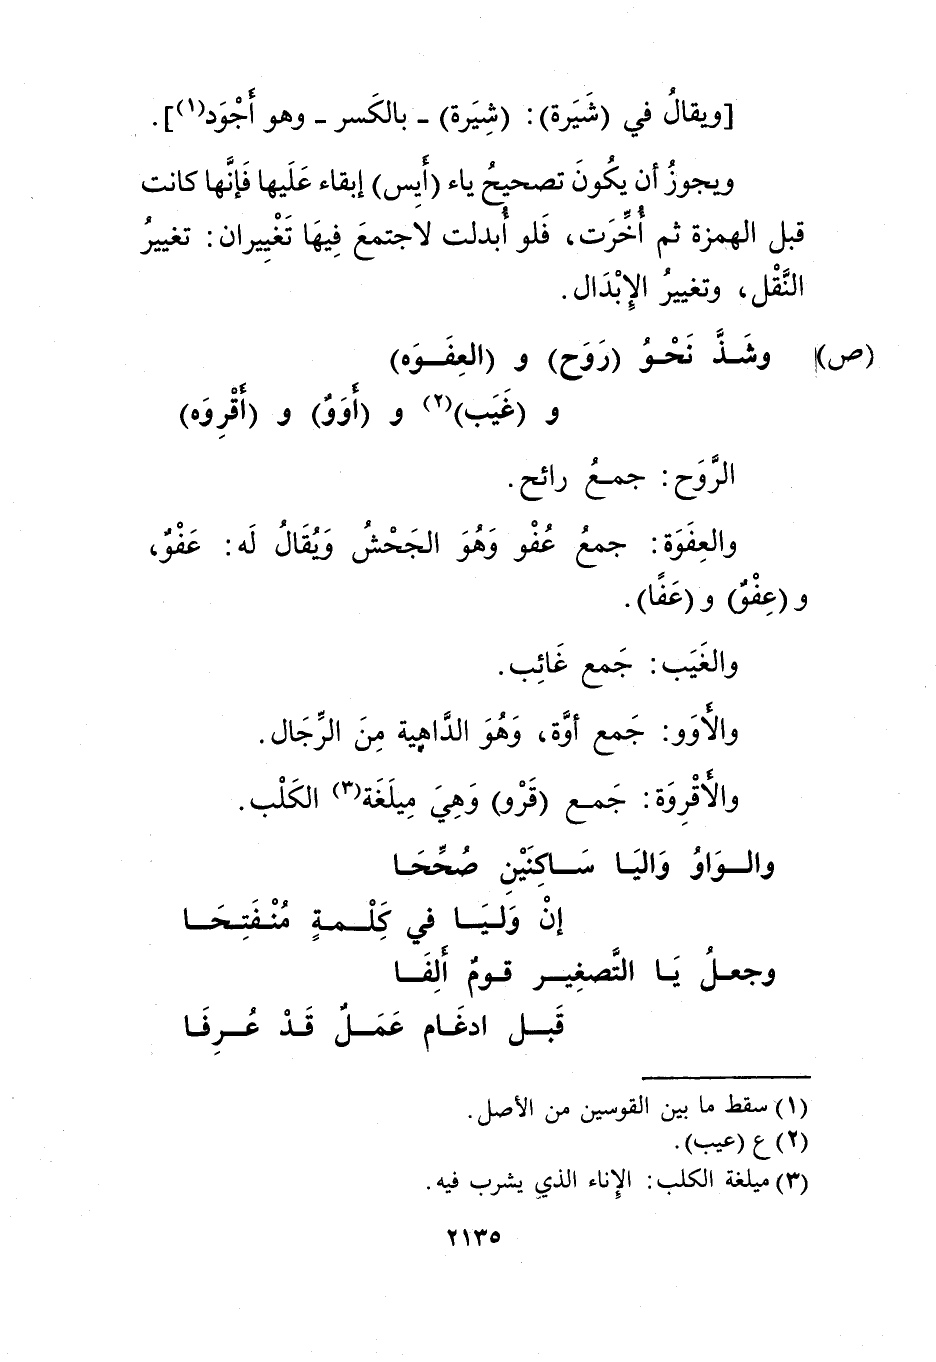 [ويقالُ في (شَيَرة): (شِيَرة) ـ بالكَسر ـ وهو أَجْوَد(١)].
ويجوزُ أن يكُونَ تصحيحُ ياء (أَيِس) إبقاء عَلَيها فَإنَّها كانت
قبل الهمزة ثم أُخِّرَت، فَلو أُبدلت لاجتمعَ فِيهَا تَغْيِيران: تغييرُ
النَّقْل، وتغييرُ الإِبْدَال.
(ص) وشَـذَّ نَحْـوُ (رَوَح) و (العِفَـوَه)
و (غَيَب)(٢) و (أَوَوٌ) و (أَقْرِوَه)
الرَّوَح: جمـعُ رائح.
والعِفَوَة: جمعُ عُفْو وَهُوَ الجَحْشُ وَيُقَالُ لَه: عَفْوٌ،
و (عِفْوٌ) و (عَفًا).
والغَيَب: جَمع غَائِب.
والأَوَو: جَمع أوَّة، وَهُوَ الدَّاهِية مِنَ الرِّجَال.
والأَقْرِوَة: جَمـع (قَرْو) وَهِيَ مِيلَغَة(٣) الكَلْب.
والـوَاوُ وَاليَـا سَـاكِنَيْنِ صُحِّحَـا
إنْ وَلـيَـا في كَلْـمـةٍ مُنْـفَتِـحَـا
وجعـلُ يَـا التَّصغِيـر قـومٌ أَلِفَـا
قَبـل ادغَـام عَمَـلٌ قَـدْ عُـرِفَـا
(١) سقط ما بين القوسين من الأصل.
(٢) ع (عيب).
(٣) ميلغة الكلب: الإناء الذي يشرب فيه.
٢١٣٥